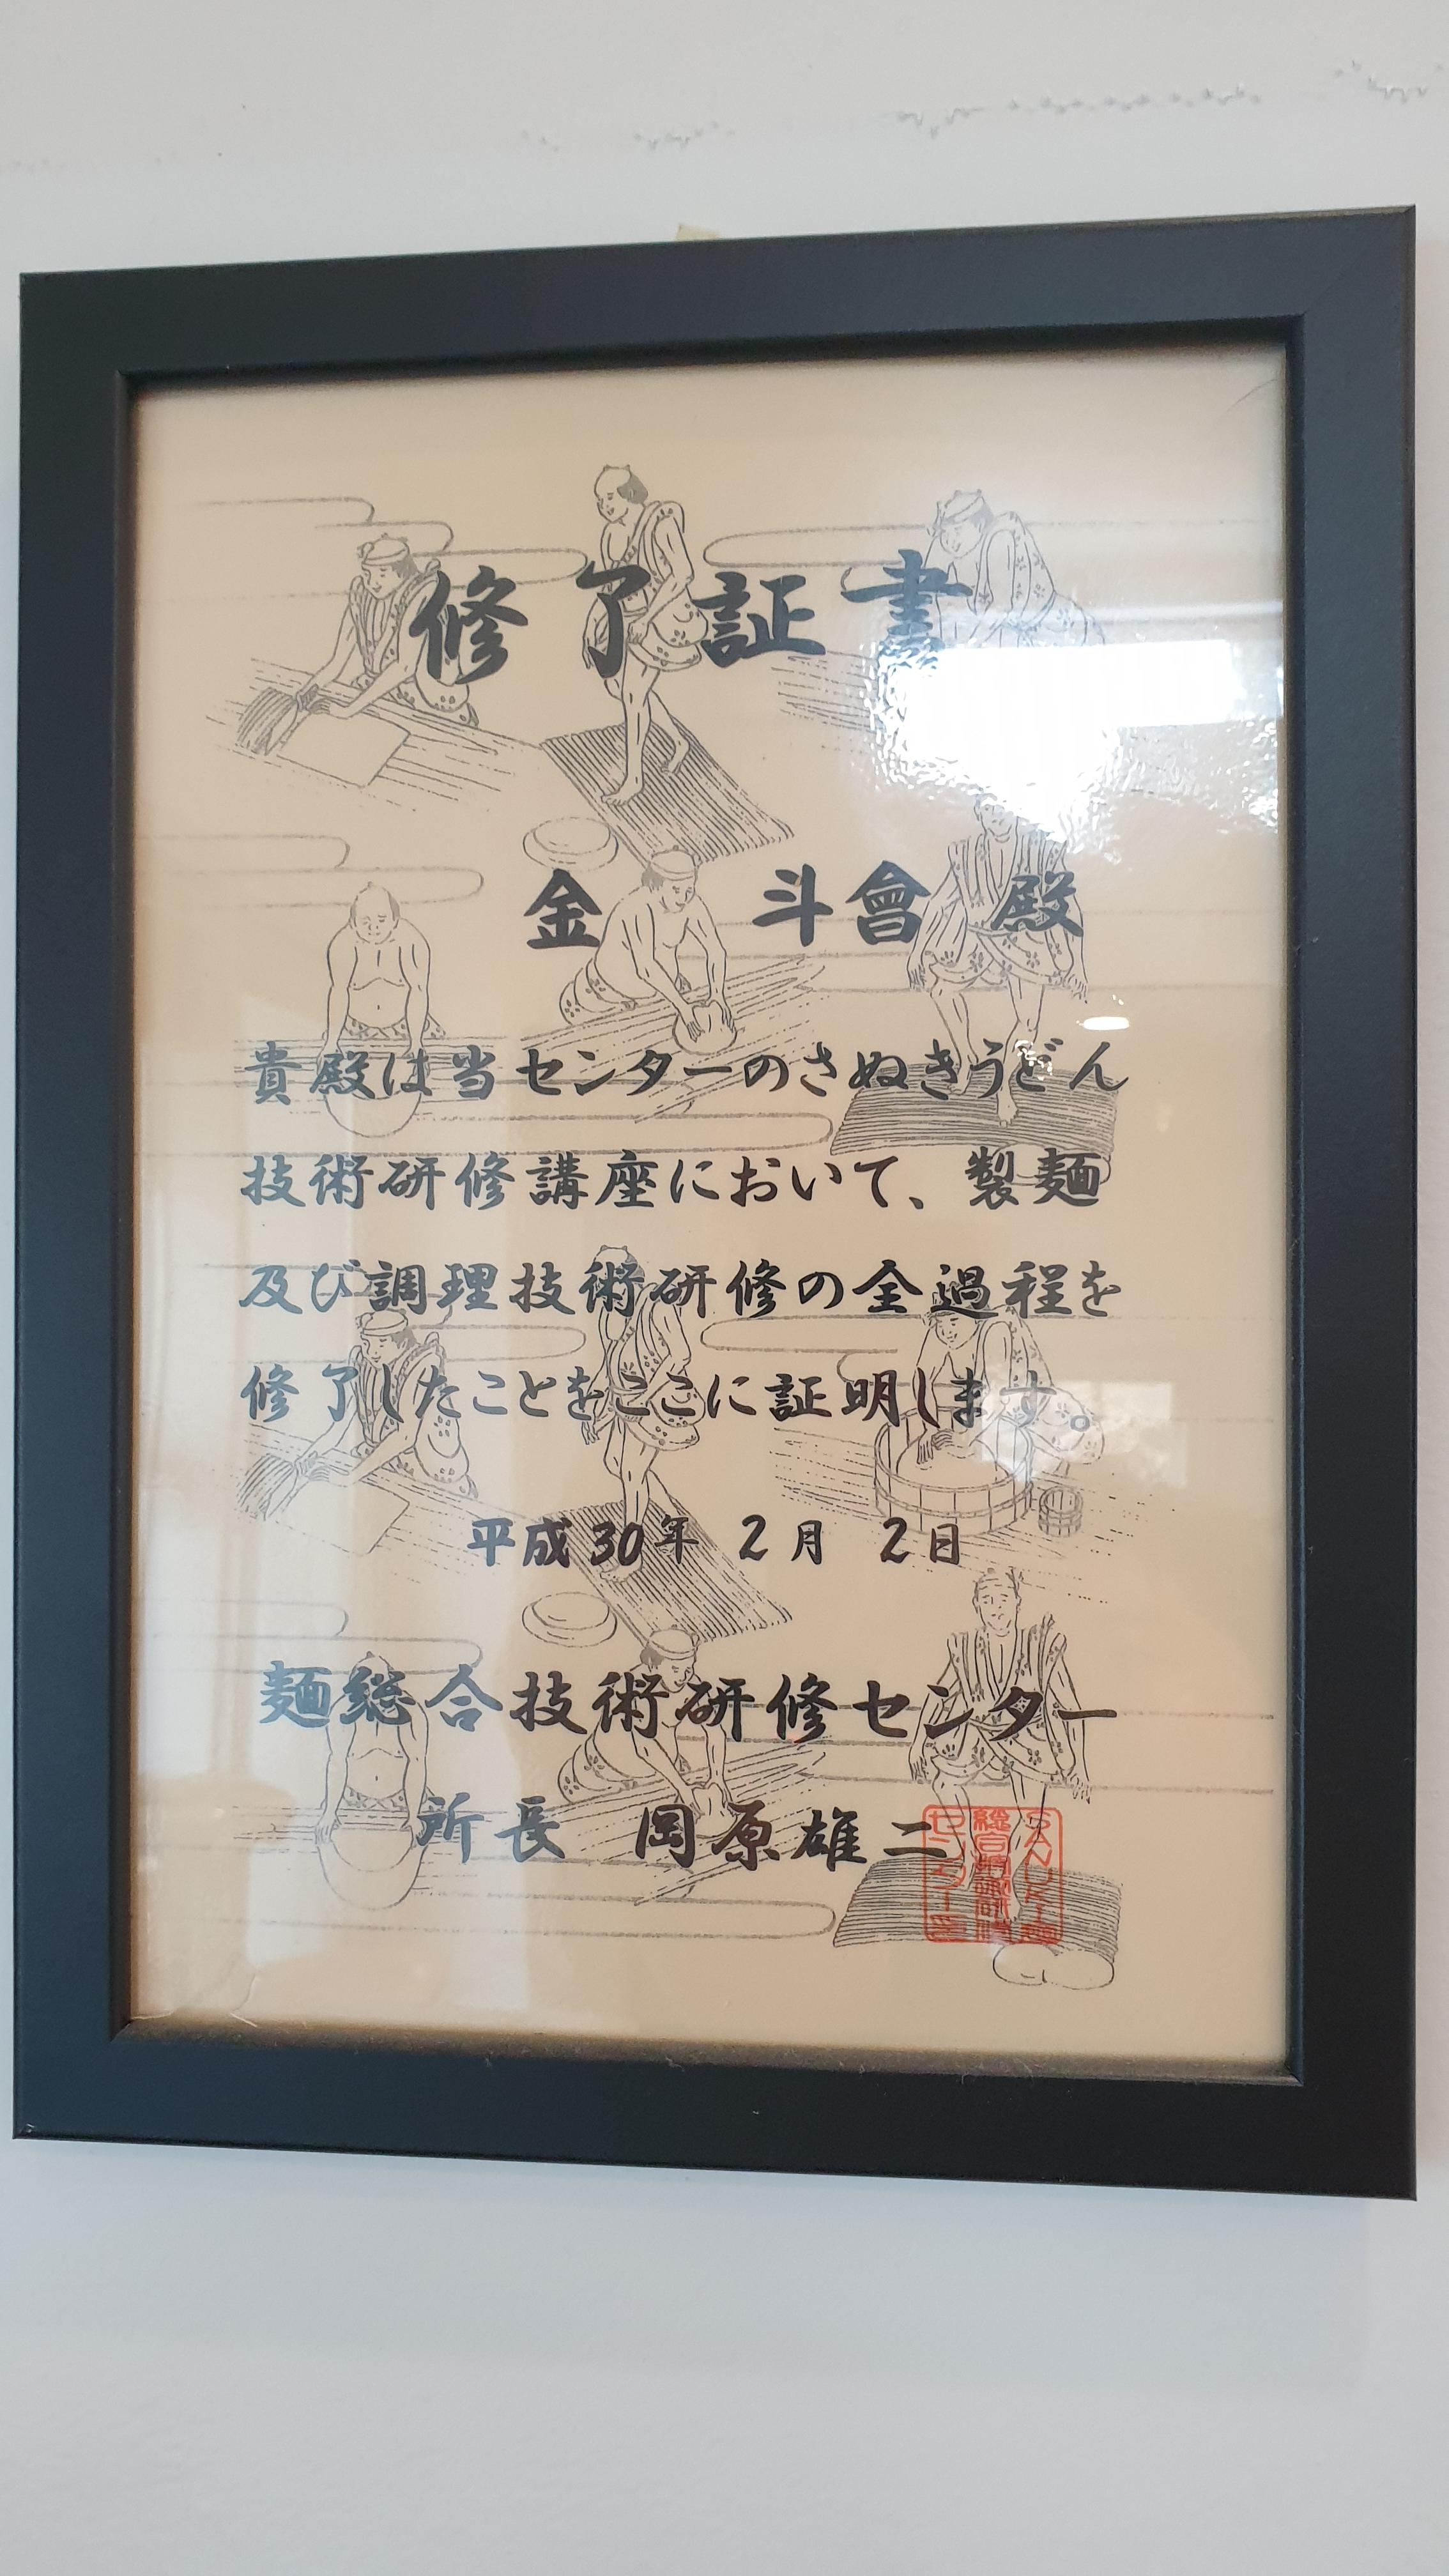 修了証書
金 斗會 殿
貴殿は当センターのさぬきうどん
技術研修講座において、製麺
及び調理技術研修の全過程を
修了したことをここに証明します。
平成30年 2月 2日
麺総合技術研修センター
所長 岡原雄二